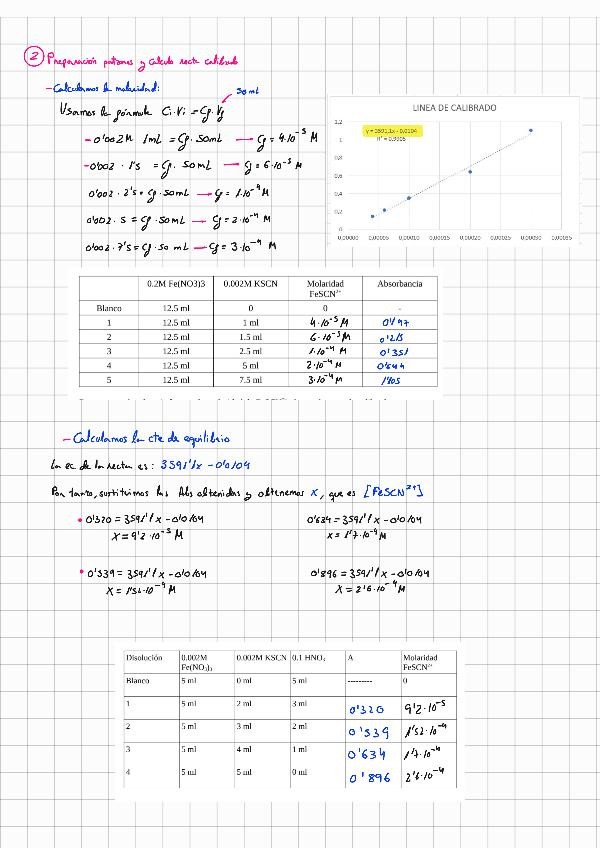 2 Preparación patrones y calculo recta calibrado
- Calculamos la molaridad:
50 mL
Usamos la fórmula Ci·Vi = Cf·Vf
- 0'002M · 1mL = Cf · 50mL → Cf = 4·10⁻⁵ M
- 0'002 · 1'5 = Cf · 50mL → Cf = 6·10⁻⁵ M
0'002 · 2'5 = Cf · 50mL → Cf = 1·10⁻⁴ M
0'002 · 5 = Cf · 50mL → Cf = 2·10⁻⁴ M
0'002 · 7'5 = Cf · 50 mL → Cf = 3·10⁻⁴ M
LINEA DE CALIBRADO
y = 3591,1x - 0,0104
R² = 0,9905
1,2
1
0,8
0,6
0,4
0,2
0
0,00000 0,00005 0,00010 0,00015 0,00020 0,00025 0,00030 0,00035
0.2M Fe(NO3)3 0.002M KSCN Molaridad FeSCN²⁺ Absorbancia
Blanco 12.5 ml 0 0 -
1 12.5 ml 1 ml 4·10⁻⁵ M
2 12.5 ml 1.5 ml 6·10⁻⁵ M 0'215
3 12.5 ml 2.5 ml 1·10⁻⁴ M 0'351
4 12.5 ml 5 ml 2·10⁻⁴ M 0'644
5 12.5 ml 7.5 ml 3·10⁻⁴ M 1'105
- Calculamos la cte de equilibrio
La ec de la recta es: 3591'1x - 0'0104
Por tanto, sustituimos las Abs obtenidas y obtenemos x, que es [FeSCN²⁺]
• 0'320 = 3591'1x - 0'0104
x = 9'2·10⁻⁵ M
0'634 = 3591'1x - 0'0104
x = 1'7·10⁻⁴ M
• 0'539 = 3591'1x - 0'0104
x = 1'52·10⁻⁴ M
0'896 = 3591'1x - 0'0104
x = 2'6·10⁻⁴ M
Disolución 0.002M Fe(NO₃)₃ 0.002M KSCN 0.1 HNO₃ A Molaridad FeSCN²⁺
Blanco 5 ml 0 ml 5 ml --------- 0
1 5 ml 2 ml 3 ml 0'320 9'2·10⁻⁵
2 5 ml 3 ml 2 ml 0'539 1'52·10⁻⁴
3 5 ml 4 ml 1 ml 0'634 1'7·10⁻⁴
4 5 ml 5 ml 0 ml 0'896 2'6·10⁻⁴